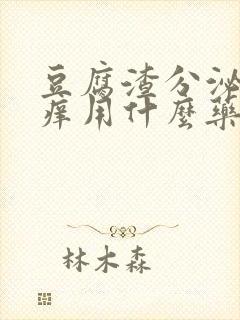 豆腐渣分泌
痒用什麼藥
林木森